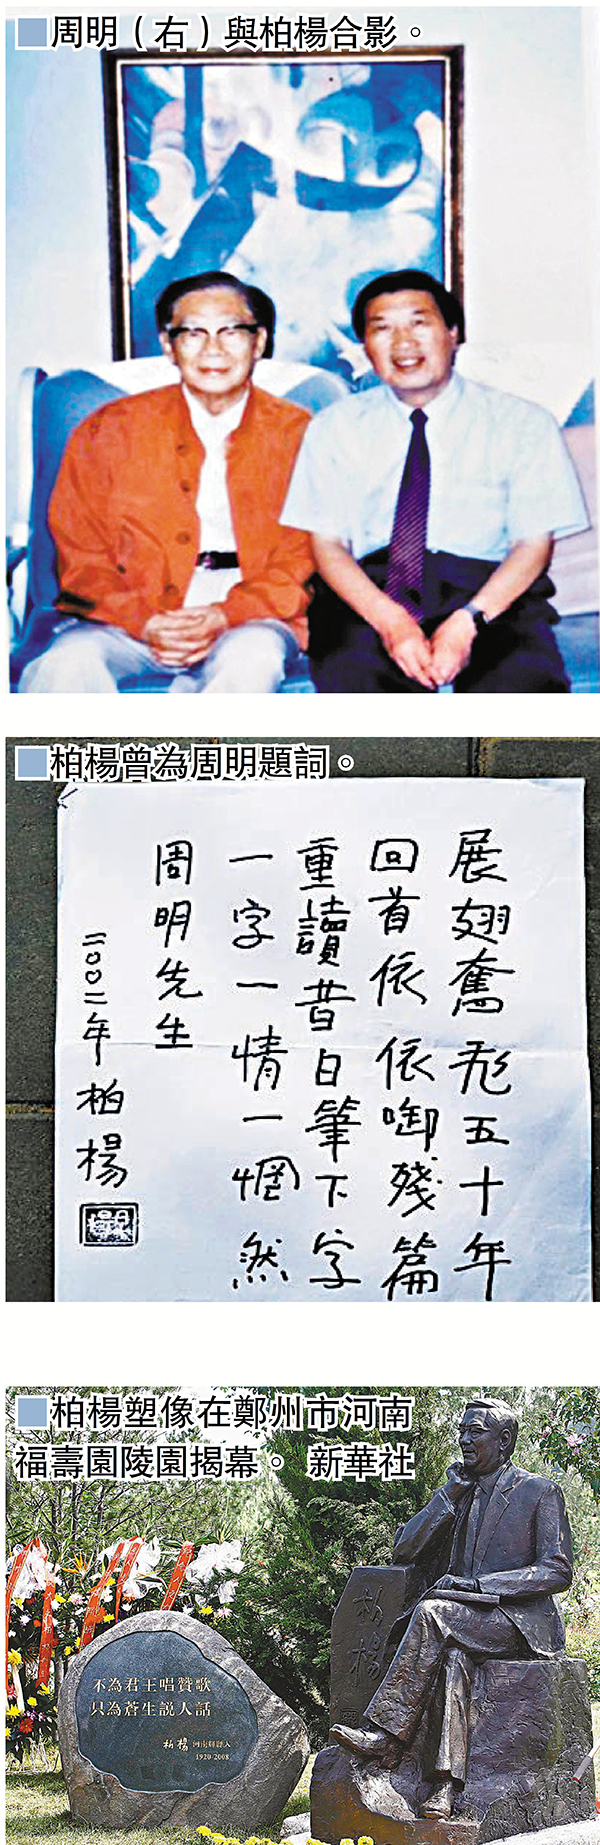 周明（右）與柏楊合影。
柏楊曾為周明題詞。
展翅奮飛五十年
回首依依啣殘篇
重讀昔日筆下字
一字一情一惘然
周明先生
二〇〇二年 柏楊
柏楊塑像在鄭州市河南
福壽園陵園揭幕。 新華社
柏楊
不為君王唱贊歌
只為蒼生説人話
柏楊 河南輝縣人
1920-2008